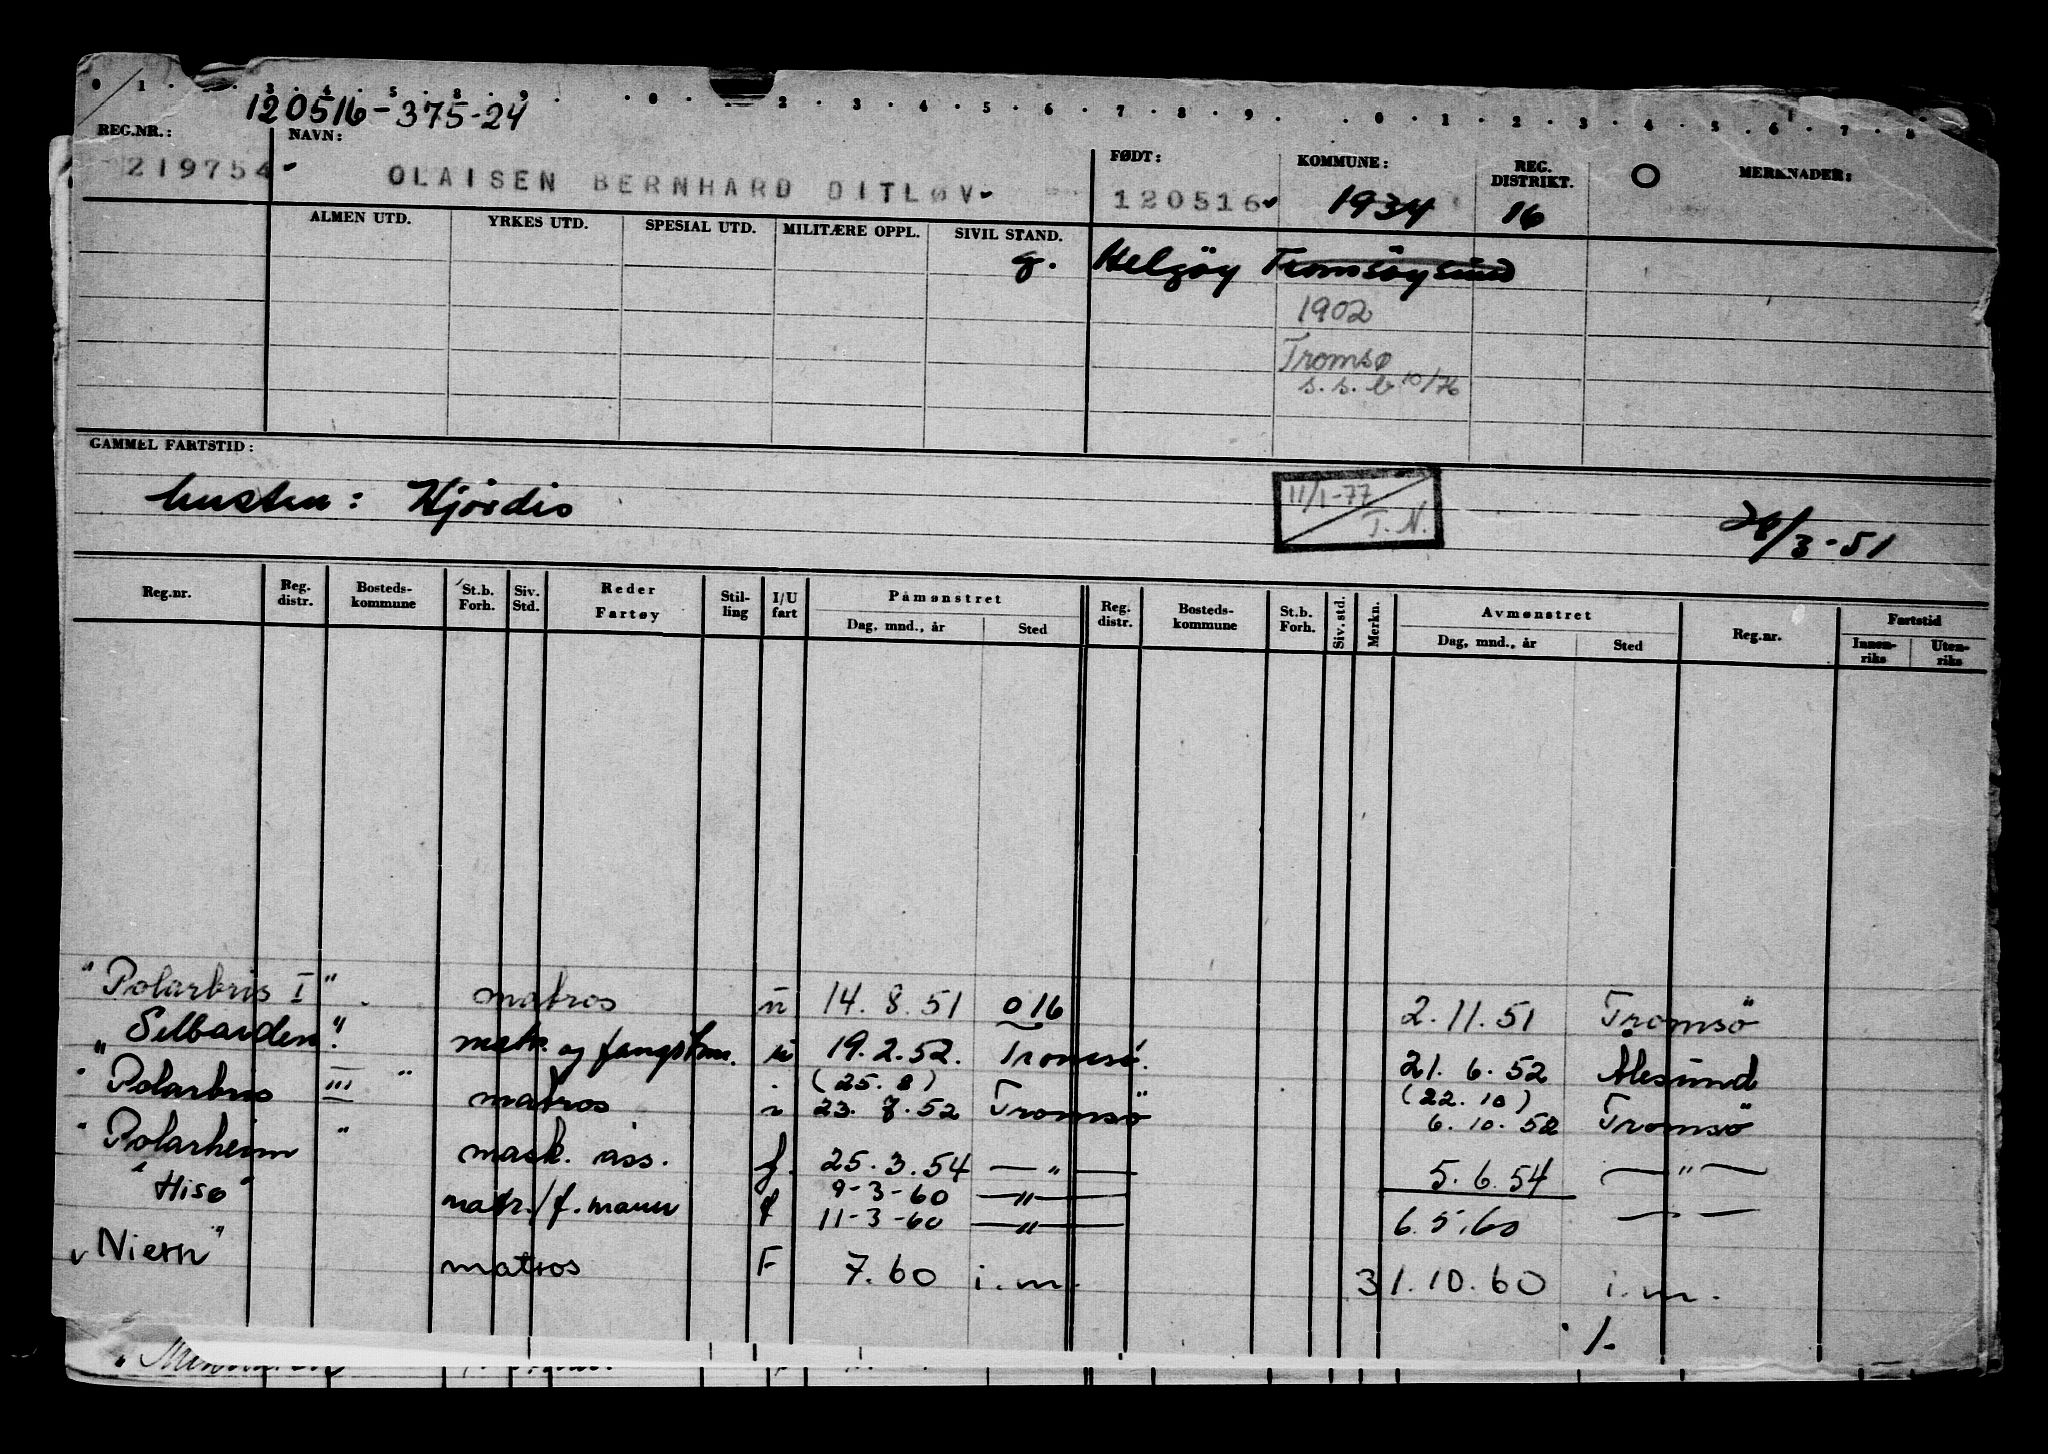 0 1 3 4 5 8 9 0 2 3 4 5 6 7 8 9 0 1 2 3 4 5 6 7 8
120516-375-24
REG.NR.: NAVN: FØDT: KOMMUNE: REG. DISTRIKT. MERKNADER:
219754 OLAISEN BERNHARD DITLØV 120516 1934 16
ALMEN UTD. YRKES UTD. SPESIAL UTD. MILITÆRE OPPL. SIVIL STAND.
g. Helgöy Tromsöysund
1902
Tromsø
s.s.b 10/76
GAMMEL FARTSTID:
hustru: Hjördis 11/1-77 T.N. 28/3-51
Reg.nr. Reg. distr. Bosteds-kommune St.b. Forh. Siv. Std. Reder Fartøy Stil-ling I/U fart Påmønstret Reg. distr. Bosteds-kommune St.b. Forh. Siv. std. Merkn. Avmønstret Reg.nr. Fartstid
Dag, mnd., år Sted Dag, mnd., år Sted Innen-riks Uten-riks
"Polarbris I" matros u 14.8.51 016 2.11.51 Tromsö
"Selbarden" matr. og fangstm. u 19.2.52. Tromsö. 21.6.52 Ålesund
(25.8) (22.10)
"Polarbris III" matros i 23.7.52 Tromsö 6.10.52 Tromsö
"Polarheim" mask. ass. f. 25.3.54 —"— 5.6.54 —"—
9-3-60 —"—
"Hisö" matr./f.mann f 11-3-60 —"— 6.5.60 — —
"Niern" matros F 7.60 i.m. 31.10.60 i.m.
·/.